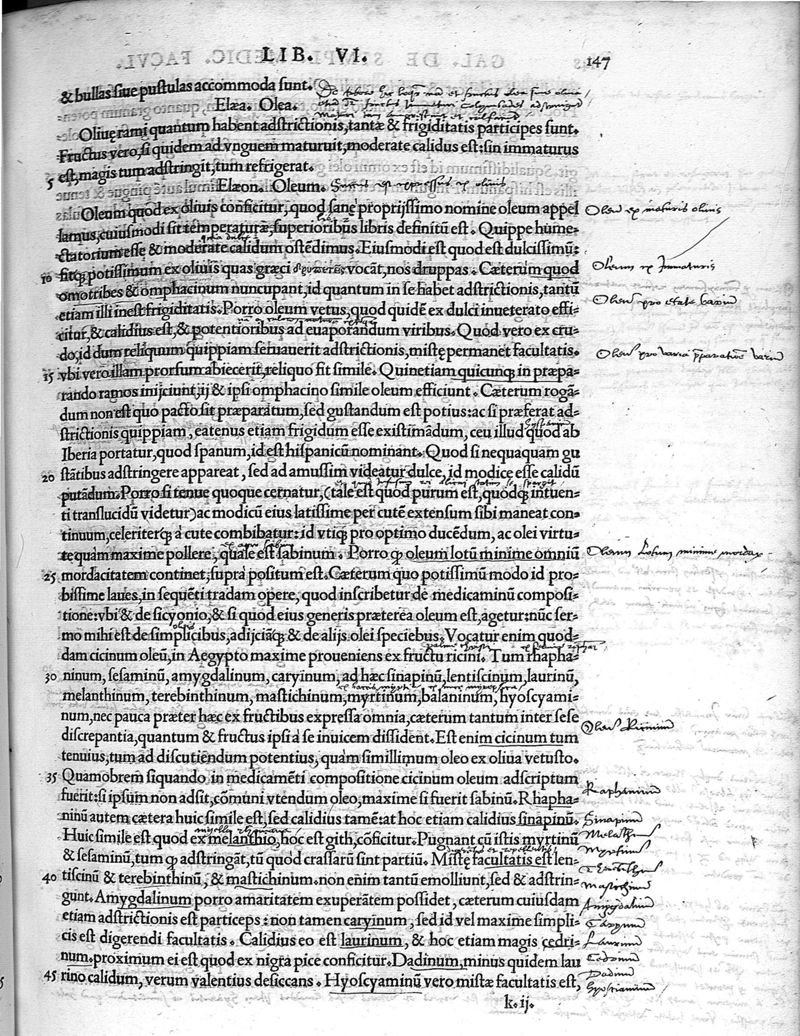 LIB. VI.
147
& bullas siue pustulas accommoda sunt.
Elæa. Olea.
Oliuę rami quantum habent adstrictionis, tantæ & frigiditatis participes sunt.
Fructus vero, si quidem ad vnguem maturuit, moderate calidus est: sin immaturus
5 est, magis tum adstringit, tum refrigerat.
Elæon. Oleum.
Oleum quod ex oliuis conficitur, quod sanę proprijssimo nomine oleum appel
lamus, cuiusmodi sit temperaturæ, superioribus libris definitũ est. Quippe hume-
ctatorium esse & moderate calidum ostẽdimus. Eiusmodi est quod est dulcissimũ:
10 fitq; potissimum ex oliuis quas græci vocãt, nos druppas. Cæterum quod
omotribes & omphacinum nuncupant, id quantum in se habet adstrictionis, tantũ
etiam illi inest frigiditatis. Porro oleum vetus, quod quidẽ ex dulci inueterato effi-
citur, & calidius est, & potentioribus ad euaporandum viribus. Quod vero ex cru-
do, id dum reliquum quippiam seruauerit adstrictionis, mistę permanet facultatis.
15 vbi vero illam prorsum abiecerit, reliquo fit simile. Quinetiam quicunq; in præpa-
rando ramos inijciunt, ij & ipsi omphacino simile oleum efficiunt. Cæterum rogã-
dum non est quo pacto sit præparatum, sed gustandum est potius: ac si præferat ad-
strictionis quippiam, eatenus etiam frigidum esse existimãdum, ceu illud quod ab
Iberia portatur, quod spanum, id est hispanicũ nominant. Quod si nequaquam gu
20 stãtibus adstringere appareat, sed ad amussim videatur dulce, id modice esse calidũ
putãdum. Porro si tenue quoque cernatur, (tale est quod purum est, quodq; intuen-
ti translucidũ videtur) ac modicũ eius latissime per cutẽ extensum sibi maneat con-
tinuum, celeriterq; a cute combibatur: id vtiq; pro optimo ducẽdum, ac olei virtu-
te quàm maxime pollere, quale est sabinum. Porro q oleum lotũ minime omniũ
25 mordacitatem continet, supra positum est. Cæterum quo potissimũ modo id pro-
bissime laues, in sequẽti tradam opere, quod inscribetur de medicaminũ composi-
tione: vbi & de sicyonio, & si quod eius generis præterea oleum est, agetur: nũc ser-
mo mihi est de simplicibus, adijciãq; & de alijs olei speciebus. Vocatur enim quod-
dam cicinum oleũ, in Aegypto maxime proueniens ex fructu ricini. Tum rhapha-
30 ninum, sesaminũ, amygdalinum, caryinum, ad hæc sinapinũ, lentiscinum, laurinũ,
melanthinum, terebinthinum, mastichinum, myrtinum, balaninum, hyoscyami-
num, nec pauca præter hæc ex fructibus expressa omnia, cæterum tantum inter sese
discrepantia, quantum & fructus ipsi a se inuicem dissident. Est enim cicinum tum
tenuius, tum ad discutiendum potentius, quàm simillimum oleo ex oliua vetusto.
35 Quamobrem siquando in medicamẽti compositione cicinum oleum adscriptum
fuerit: si ipsum non adsit, cõmuni vtendum oleo, maxime si fuerit sabinũ. Rhapha-
ninũ autem cætera huic simile est, sed calidius tamẽ: at hoc etiam calidius sinapinũ.
Huic simile est quod ex melanthio, hoc est gith, cõficitur. Pugnant cũ istis myrtinũ
& sesaminũ, tum q adstringãt, tũ quod crassarũ sint partiũ. Mistę facultatis est len-
40 tiscinũ & terebinthinũ, & mastichinum. non enim tantũ emolliunt, sed & adstrin-
gunt. Amygdalinum porro amaritatem exuperãtem possidet, cæterum cuiusdam
etiam adstrictionis est particeps: non tamen caryinum, sed id vel maxime simpli-
cis est digerendi facultatis. Calidius eo est laurinum, & hoc etiam magis cedri-
num. proximum ei est quod ex nigra pice conficitur. Dadinum, minus quidem lau
45 rino calidum, verum valentius desiccans. Hyoscyaminũ vero mistæ facultatis est,
k.ij.
Oleũ ex maturis oliuis
Oleum ex Immaturis
Oleũ pro etate variũ
Oleum Lotum minime mordax
Oleũ Ricininũ
Raphaninũ
Sinapinũ
Myrtinũ
Mastichinũ
Amygdalinũ
Caryinũ
Laurinũ
Cedrinũ
Dadinũ